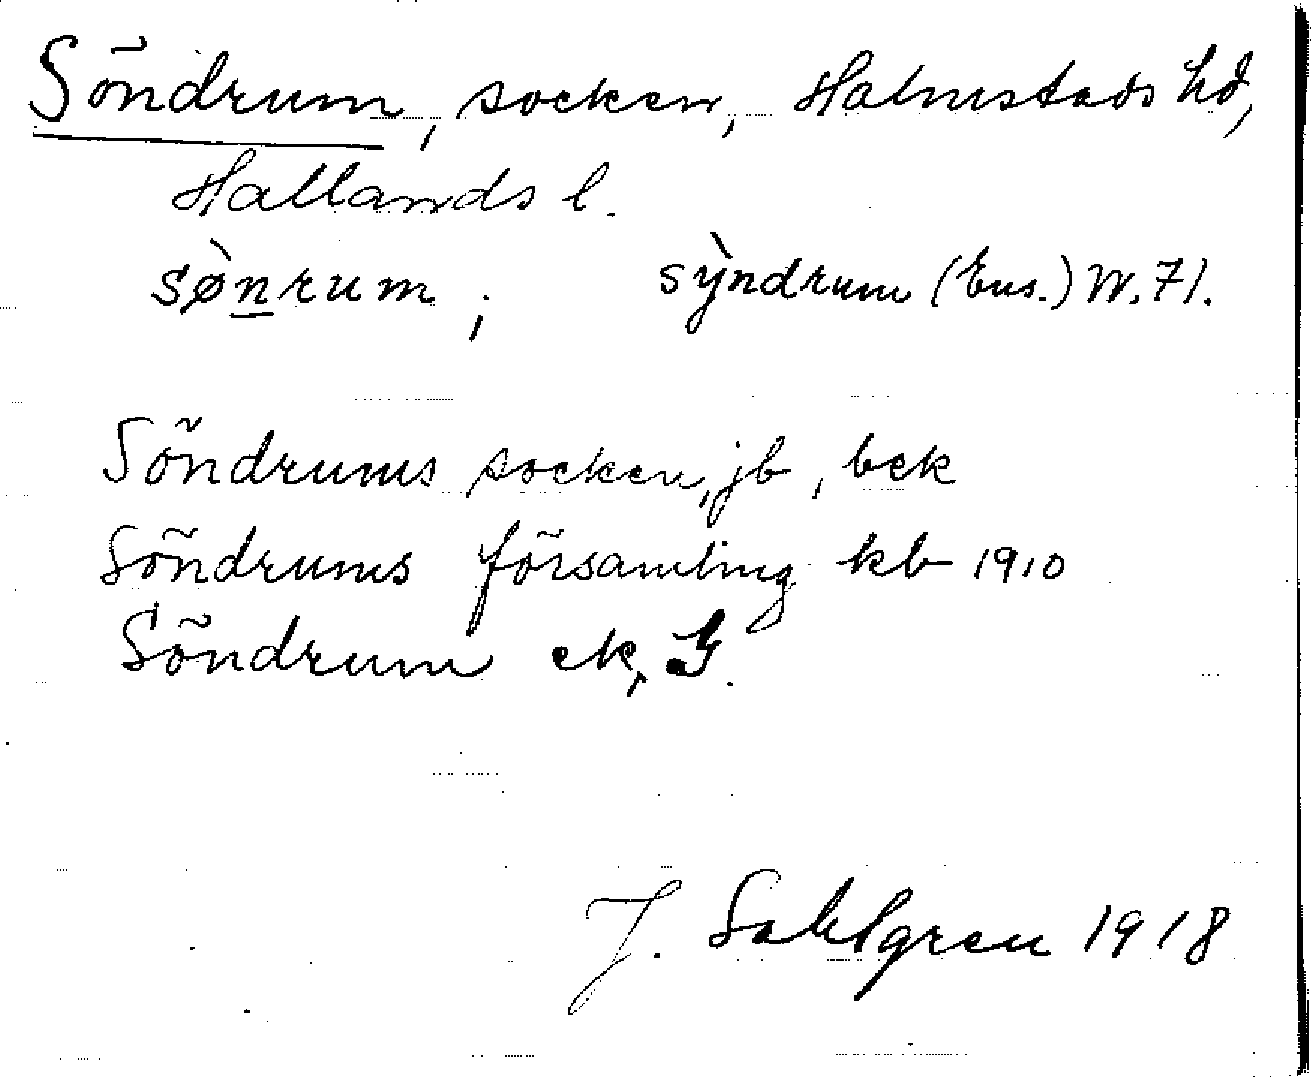 Söndrum, socken, Halmstads hd,
Hallands l.
sø̀nrum; sỳndrum (Eus.) W. 71.
Söndrums socken, jb, bek
Söndrums församling kb 1910
Söndrum ek, G.
J. Sahlgren 1918